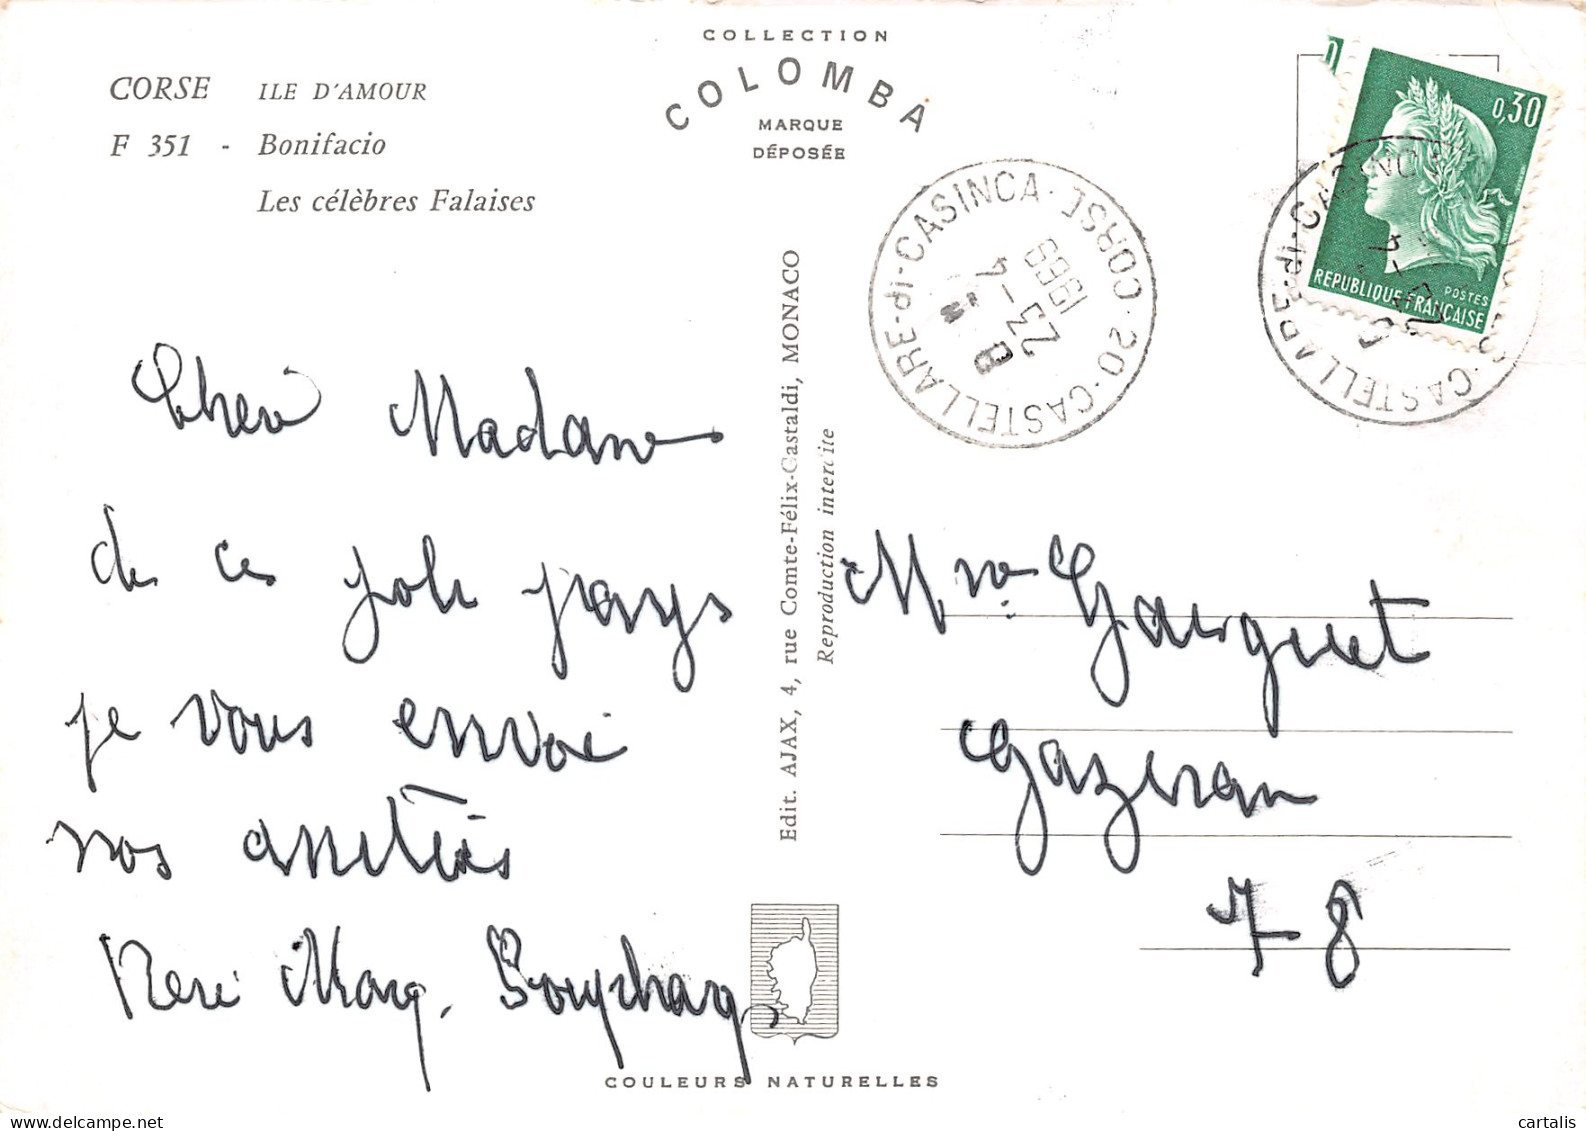 COLLECTION
COLOMBA
MARQUE
DÉPOSÉE
CORSE ILE D'AMOUR
F 351 - Bonifacio
Les célèbres Falaises
0,30
REPUBLIQUE FRANÇAISE
POSTES
CASTELLARE-DI-CASINCA · 20 · CORSE
23 - 4
1969
CASTELLARE-DI-CASINCA
Edit. AJAX, 4, rue Comte-Félix-Gastaldi, MONACO
Reproduction interdite
Cher Madame
de ce joli pays
je vous envoi
nos amitiés
Mme
Gazeran
78
COULEURS NATURELLES
delcampe.net
cartalis